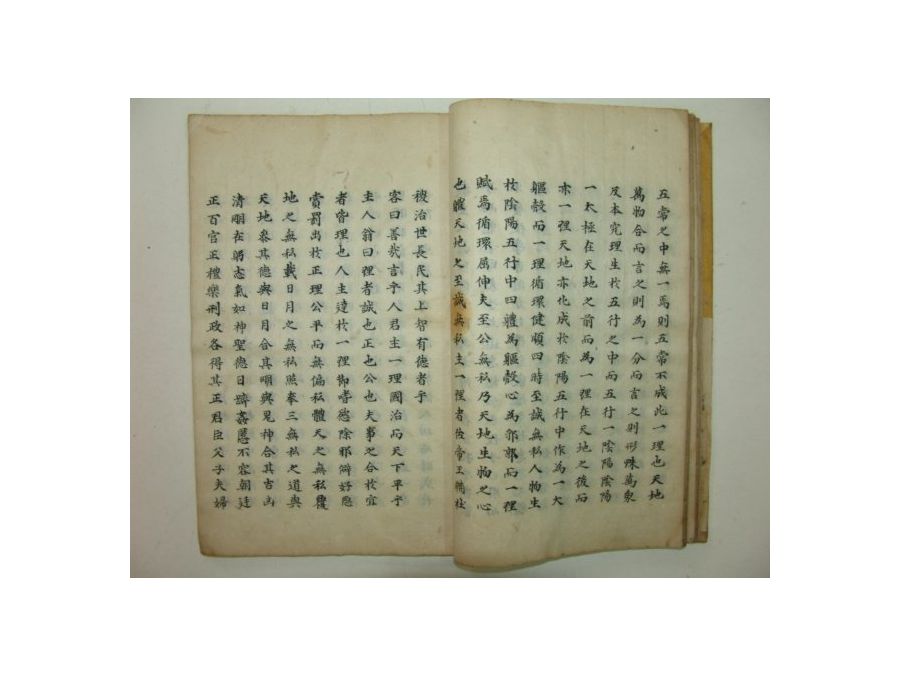 五常之中無一焉則五常不成此一理也天地
萬物合而言之則為一分而言之則形殊萬象
反本究理生於五行之中而五行一陰陽陰陽
一太極在天地之前而為一理在天地之後而
亦一理天地亦化成於陰陽五行中作為一大
軀殼而一理循環健順四時至誠無私人物生
於陰陽五行中四軆為軀殼心為郭郭而一理
賦焉循環屈伸夫至公無私乃天地生物之心
也軆天地之至誠無私主一理者佐帝王補
後治世長民其上智有德者乎
客曰善哉言乎人君主一理國治而天下平乎
主人翁曰理者誠也正也公也夫事之合於宜
者皆理也人主達於一理御嗜慾除邪僻好惡
賞罰出於正理公平而無偏私體天之無私覆
地之無私載日月之無私照奉三無私之道與
天地叅其德與日月合其明與鬼神合其吉凶
清明在躬志氣如神聖德日躋姦慝不容朝廷
正百官正禮樂刑政各得其正君臣父子夫婦